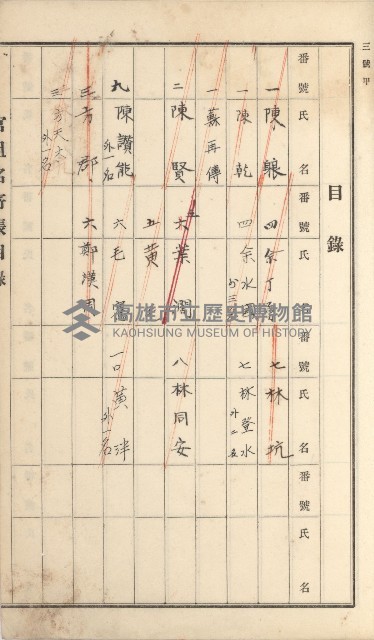 三號甲
目錄
番號氏名番號氏名番號氏名番號氏名
一陳 四余丁 七林坑
一陳乾 四余水 外三 七林登水 外二名
一蘇再傳
二陳賢 六五葉潤 八林同安
五黃
九陳讚能 外一名 六毛 一〇黃泮 外一名
三方郡 六鄭漢
三方天 外一名
高雄市立歷史博物館
KAOHSIUNG MUSEUM OF HISTORY